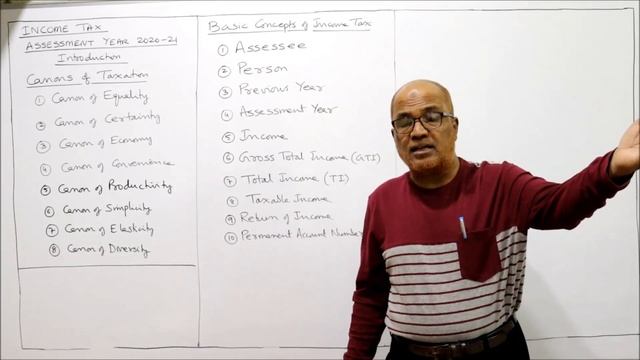 INCOME TAX
ASSESSMENT YEAR 2020-21
Introduction
Canons of Taxation
① Canon of Equality
② Canon of Certainty
③ Canon of Economy
④ Canon of Convenience
⑤ Canon of Productivity
⑥ Canon of Simplicity
⑦ Canon of Elasticity
⑧ Canon of Diversity
Basic Concepts of Income Tax
① Assessee
② Person
③ Previous Year
④ Assessment Year
⑤ Income
⑥ Gross Total Income (GTI)
⑦ Total Income (TI)
⑧ Taxable Income
⑨ Return of Income
⑩ Permanent Account Number